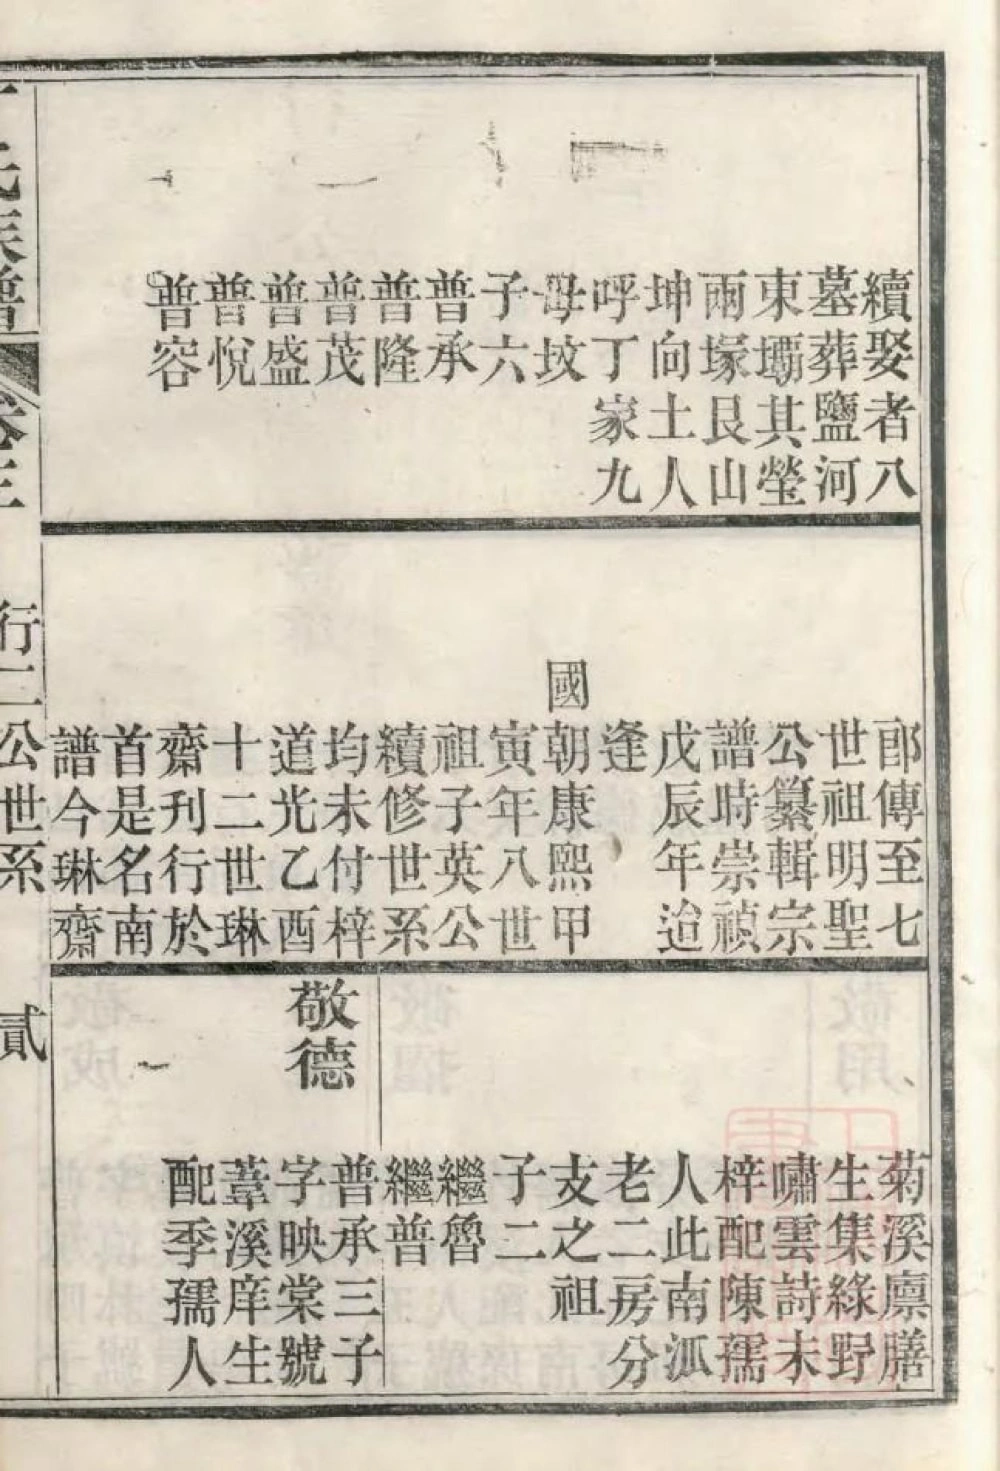 續娶者八
墓葬鹽河
東壩其塋
兩塚艮山
坤向土人
呼丁家九
母坟
子六
普承
普隆
普茂
普盛
普悅
普容
郎傳至七
世祖明聖
公纂輯宗
譜時崇禎
戊辰年迨
逢
國朝康熙甲
寅年八世
祖子英公
續修世系
均未付梓
道光乙酉
十二世琳
齋刊行於
首是名南
譜今琳齋
菊溪廪膳
生集綠野
嘯雲詩未
梓配陳孺
人此南派
老二房分
支之祖
子二
繼魯
繼普
敬德
普承三子
字映棠號
葦溪庠生
配季孺人
氏族譜
卷三
行二公世系
貳